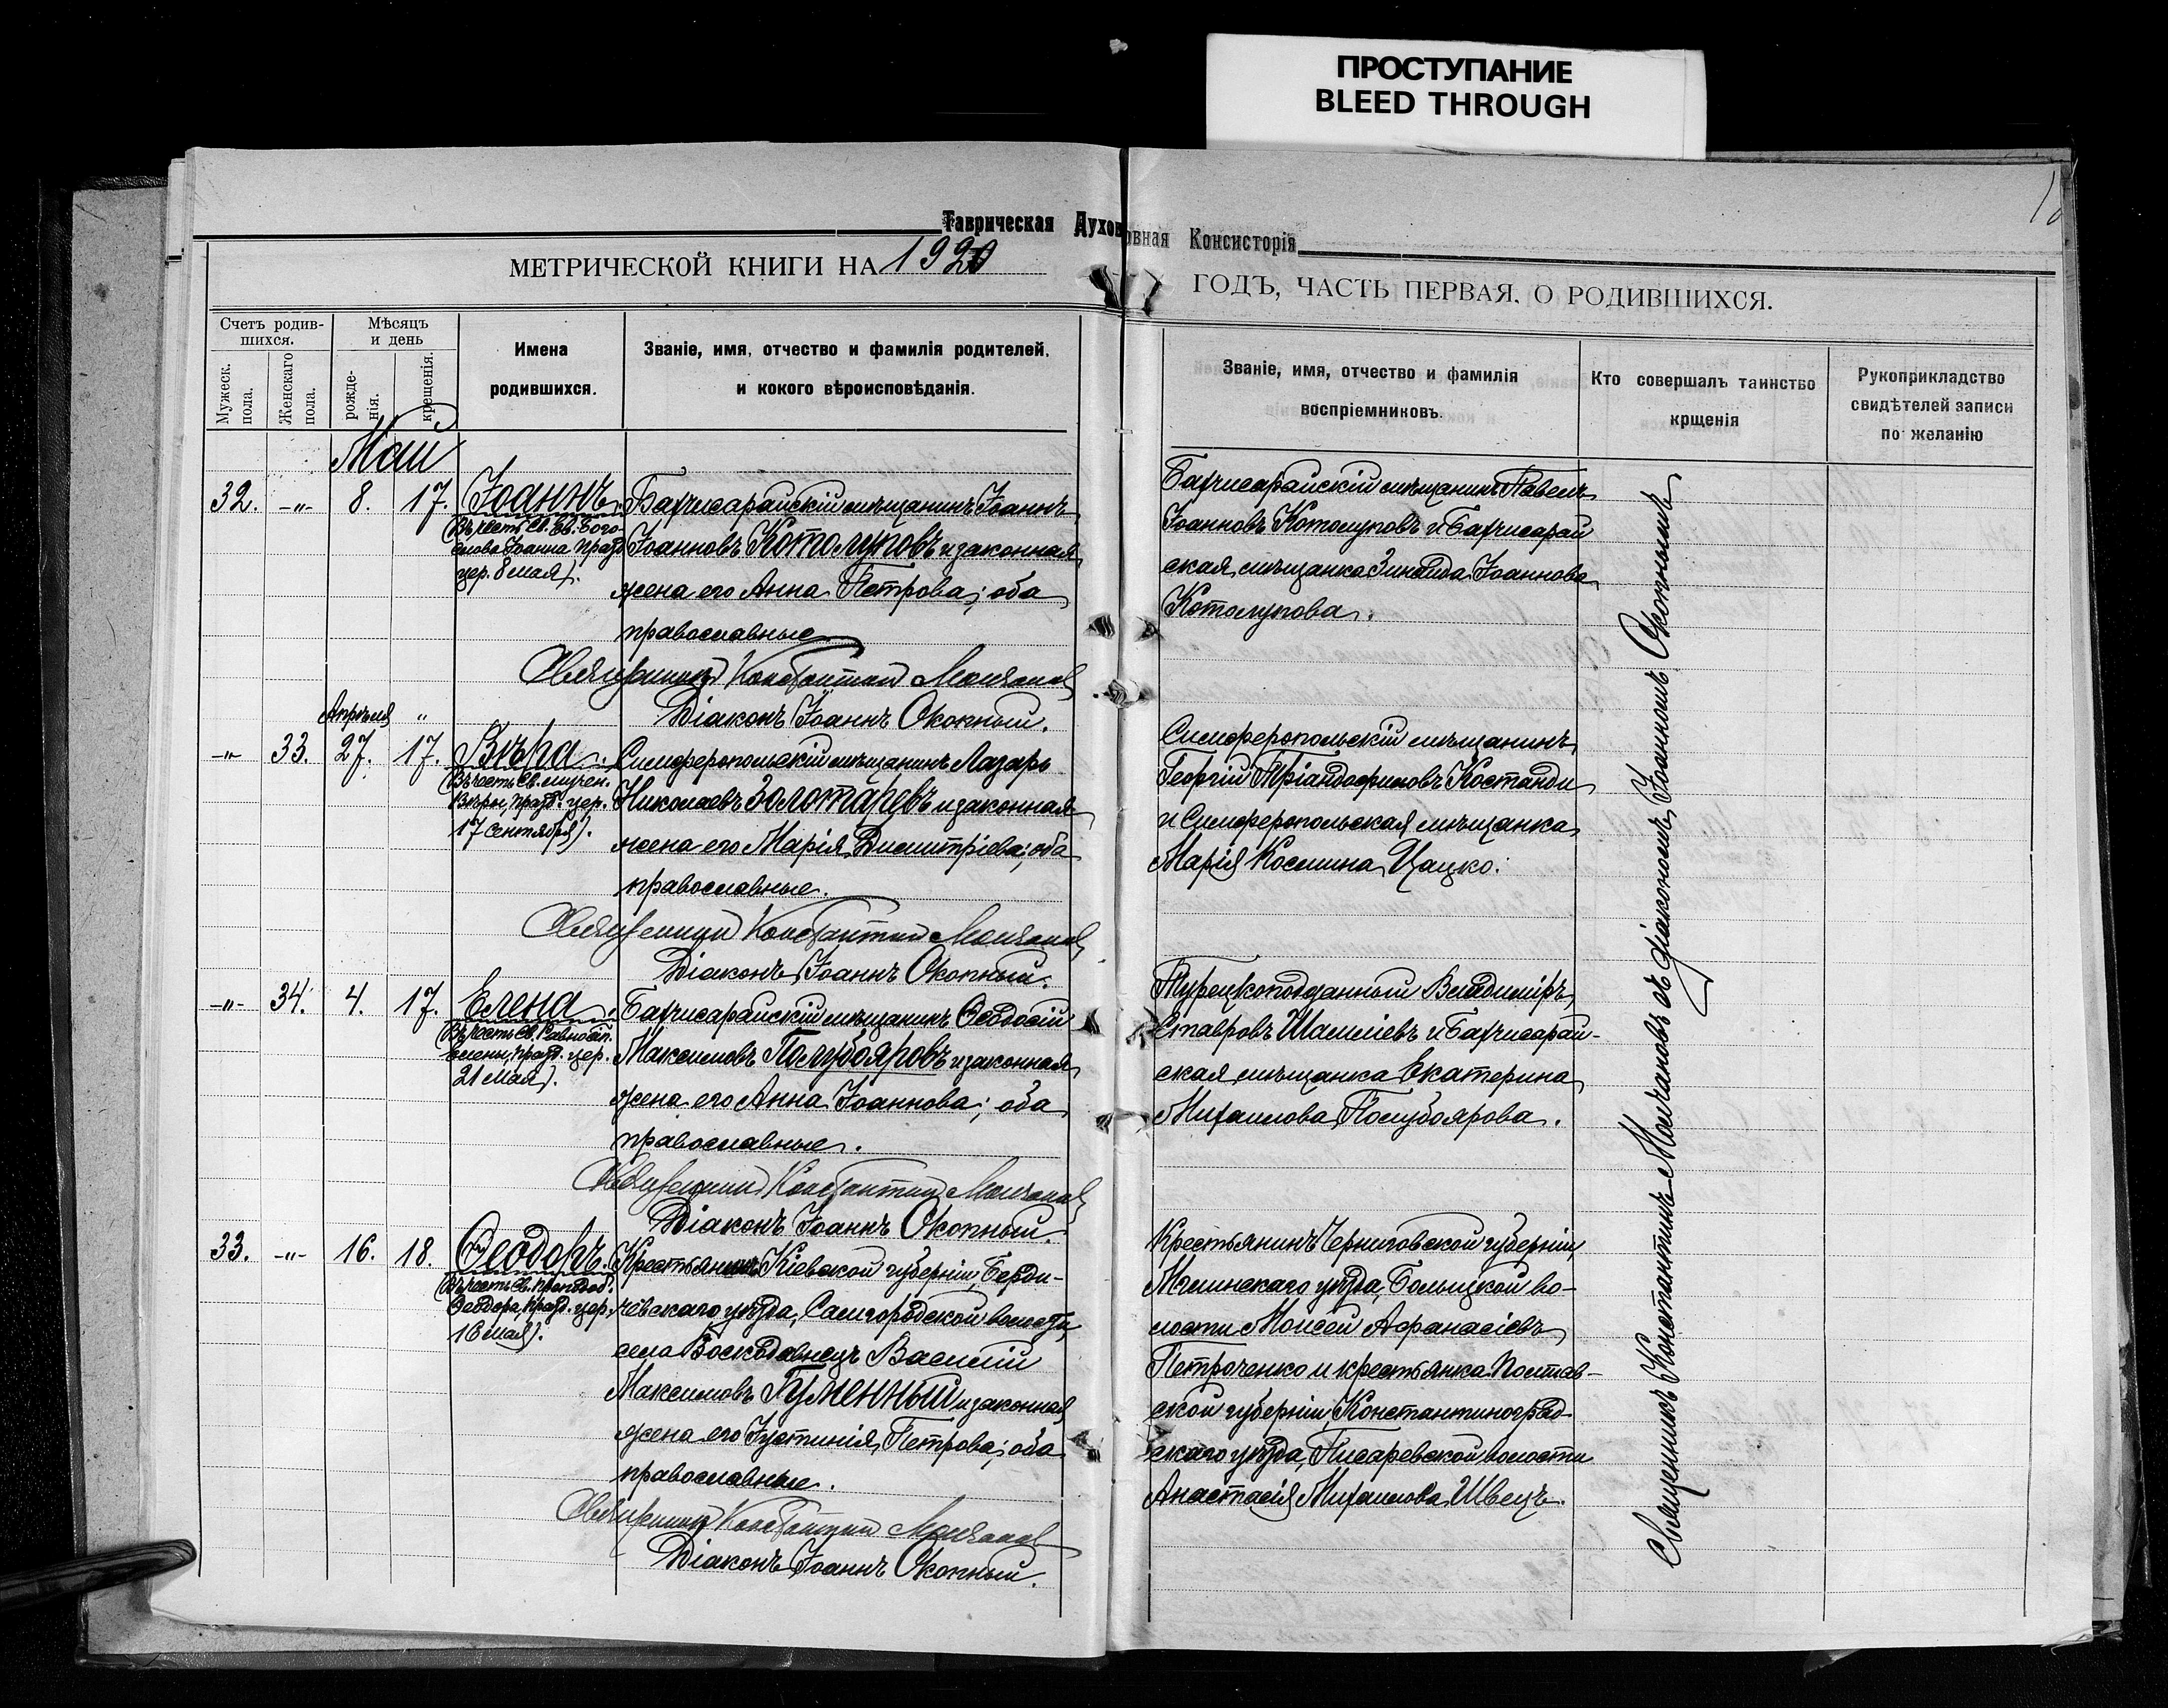 ПРОСТУПАНИЕ
BLEED THROUGH
Таврическая Духовная Консисторія
МЕТРИЧЕСКОЙ КНИГИ НА 1920
ГОДЪ, ЧАСТЬ ПЕРВАЯ, О РОДИВШИХСЯ.
Счетъ родив-
шихся.
Мужеск.
пола.
Женскаго
пола.
Мѣсяцъ
и день
рожде-
нія.
крещенія.
Имена
родившихся.
Званіе, имя, отчество и фамилія родителей,
и кокого вѣроисповѣданія.
Званіе, имя, отчество и фамилія
воспріемниковъ.
Кто совершалъ таинство
крщенія
Рукоприкладство
свидѣтелей записи
по желанію
Май
32. -"- 8. 17. Іоаннъ
(Въ честь Св. Ев. Бого-
слова Іоанна празд.
цер. 8 мая).
Бахчисарайскій мѣщанинъ Іоаннъ
Іоанновъ Котолуповъ и законная
жена его Анна Петрова; оба
православные
Священникъ Константинъ Молчановъ
Діаконъ Іоаннъ Окопный.
Бахчисарайскій мѣщанинъ Павелъ
Іоанновъ Котолуповъ и Бахчисарай
ская мѣщанка Зинаида Іоаннова
Котолупова.
Апрѣля "
-"- 33. 27. 17. Вѣра.
(Въ честь Св. мучен.
Вѣры, празд. цер.
17 сентября).
Симферопольскій мѣщанинъ Лазарь
Николаевъ Золотаревъ и законная
жена его Марія Димитріева; оба
православные.
Священникъ Константинъ Молчановъ
Діаконъ Іоаннъ Окопный.
Симферопольскій мѣщанинъ
Георгій Тріандофиловъ Костанди
и Симферопольская мѣщанка
Марія Космина Цацко.
-"- 34. 4. 17. Елена.
(Въ честь Св. Равноап.
Елены, празд. цер.
21 мая).
Бахчисарайскій мѣщанинъ Ѳеодосій
Максимовъ Полубояровъ и законная
жена его Анна Іоаннова; оба
православные.
Священникъ Константинъ Молчановъ
Діаконъ Іоаннъ Окопный.
Турецкоподданный Владиміръ
Ставровъ Шаиліевъ и Бахчисарай-
ская мѣщанка Екатерина
Михаилова Полубоярова.
33. -"- 16. 18. Ѳеодоръ.
(Въ честь Св. Преподоб.
Ѳеодора, празд. цер.
16 мая).
Крестьянинъ Кіевской губерніи, Берди-
чевскаго уѣзда, Самгородской волости,
села Воскодавнецъ Василій
Максимовъ Гуменный и законная
жена его Іустинія Петрова; оба
православные.
Священникъ Константинъ Молчановъ
Діаконъ Іоаннъ Окопный.
Крестьянинъ Черниговской губерніи,
Мглинскаго уѣзда, во-
лости Моисей Афанасіевъ
Петроченко и крестьянка Полтав-
ской губерніи, Константиноград-
скаго уѣзда, Писаревской волости
Анастасія Михаилова Швецъ.
Священникъ Константинъ Молчановъ съ діакономъ Іоанномъ Окопнымъ